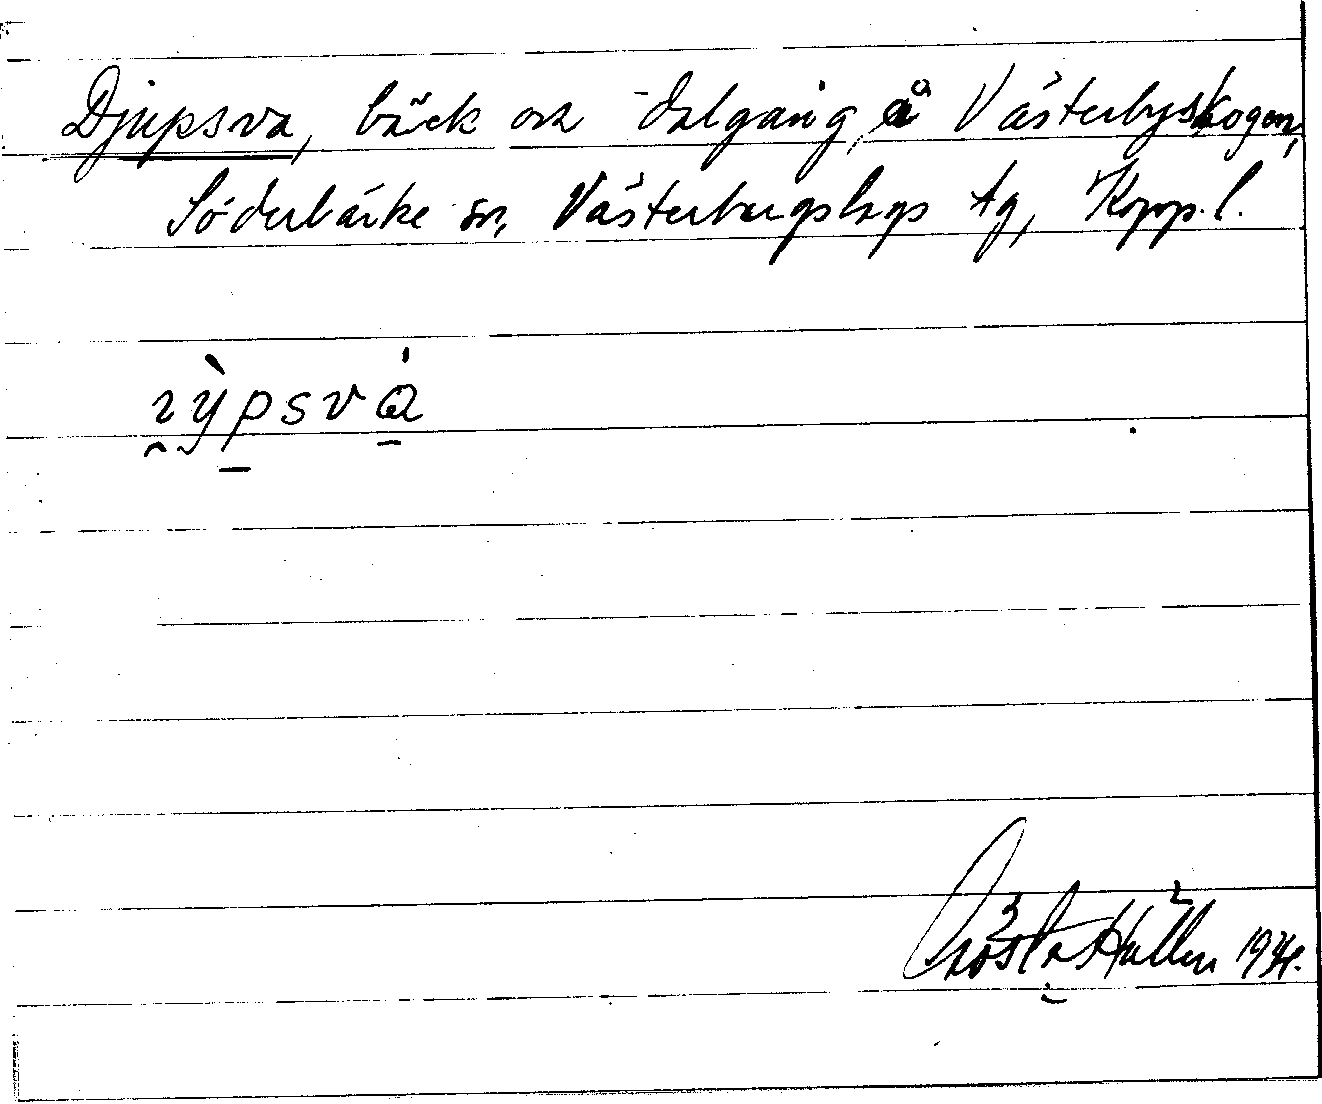 Djupsva, bäck och dalgång å Västerbyskogen,
Söderbärke sn, Västerbergslags tg, Kopp.l.
Gösta Hallén 1934.